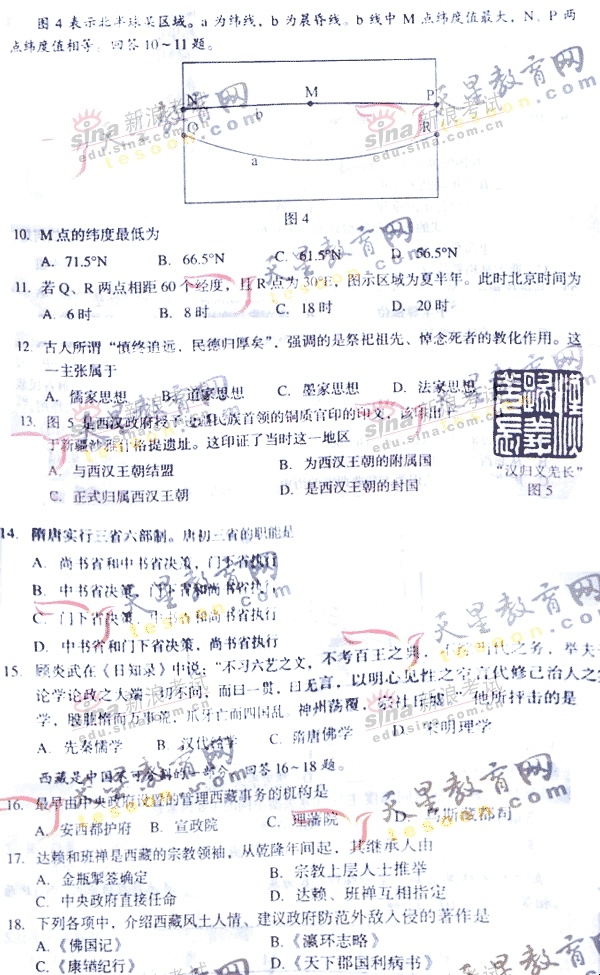 图 4 表示北半球某区域。a 为纬线，b 为晨昏线。b 线中 M 点纬度值最大，N、P 两
点纬度值相等。回答 10～11 题。
N M P
b
Q R
a
图 4
10. M 点的纬度最低为
A. 71.5°N B. 66.5°N C. 61.5°N D. 56.5°N
11. 若 Q、R 两点相距 60 个经度，且 R 点为 30°E，图示区域为夏半年。此时北京时间为
A. 6 时 B. 8 时 C. 18 时 D. 20 时
12. 古人所谓“慎终追远，民德归厚矣”，强调的是祭祀祖先、悼念死者的教化作用。这
一主张属于
A. 儒家思想 B. 道家思想 C. 墨家思想 D. 法家思想
13. 图 5 是西汉政府授予边疆民族首领的铜质官印的印文，该印出土
于新疆沙雅什格提遗址。这印证了当时这一地区
A. 与西汉王朝结盟 B. 为西汉王朝的附属国
C. 正式归属西汉王朝 D. 是西汉王朝的封国
“汉归义羌长”
图 5
14. 隋唐实行三省六部制。唐初三省的职能是
A. 尚书省和中书省决策，门下省执行
B. 中书省决策，门下省和尚书省执行
C. 门下省决策，中书省和尚书省执行
D. 中书省和门下省决策，尚书省执行
15. 顾炎武在《日知录》中说：“不习六艺之文，不考百王之典，不综当代之务，举夫子
论学论政之大端一切不问，而曰一贯，曰无言，以明心见性之空言代修己治人之实
学，股肱惰而万事荒，爪牙亡而四国乱，神州荡覆，宗社丘墟。”他所抨击的是
A. 先秦儒学 B. 汉代儒学 C. 隋唐佛学 D. 宋明理学
西藏是中国不可分割的一部分。回答 16～18 题。
16. 最早由中央政府设置的管理西藏事务的机构是
A. 安西都护府 B. 宣政院 C. 理藩院 D. 乌斯藏都司
17. 达赖和班禅是西藏的宗教领袖，从乾隆年间起，其继承人由
A. 金瓶掣签确定 B. 宗教上层人士推举
C. 中央政府直接任命 D. 达赖、班禅互相指定
18. 下列各项中，介绍西藏风土人情、建议政府防范外敌入侵的著作是
A.《佛国记》 B.《瀛环志略》
C.《康輶纪行》 D.《天下郡国利病书》